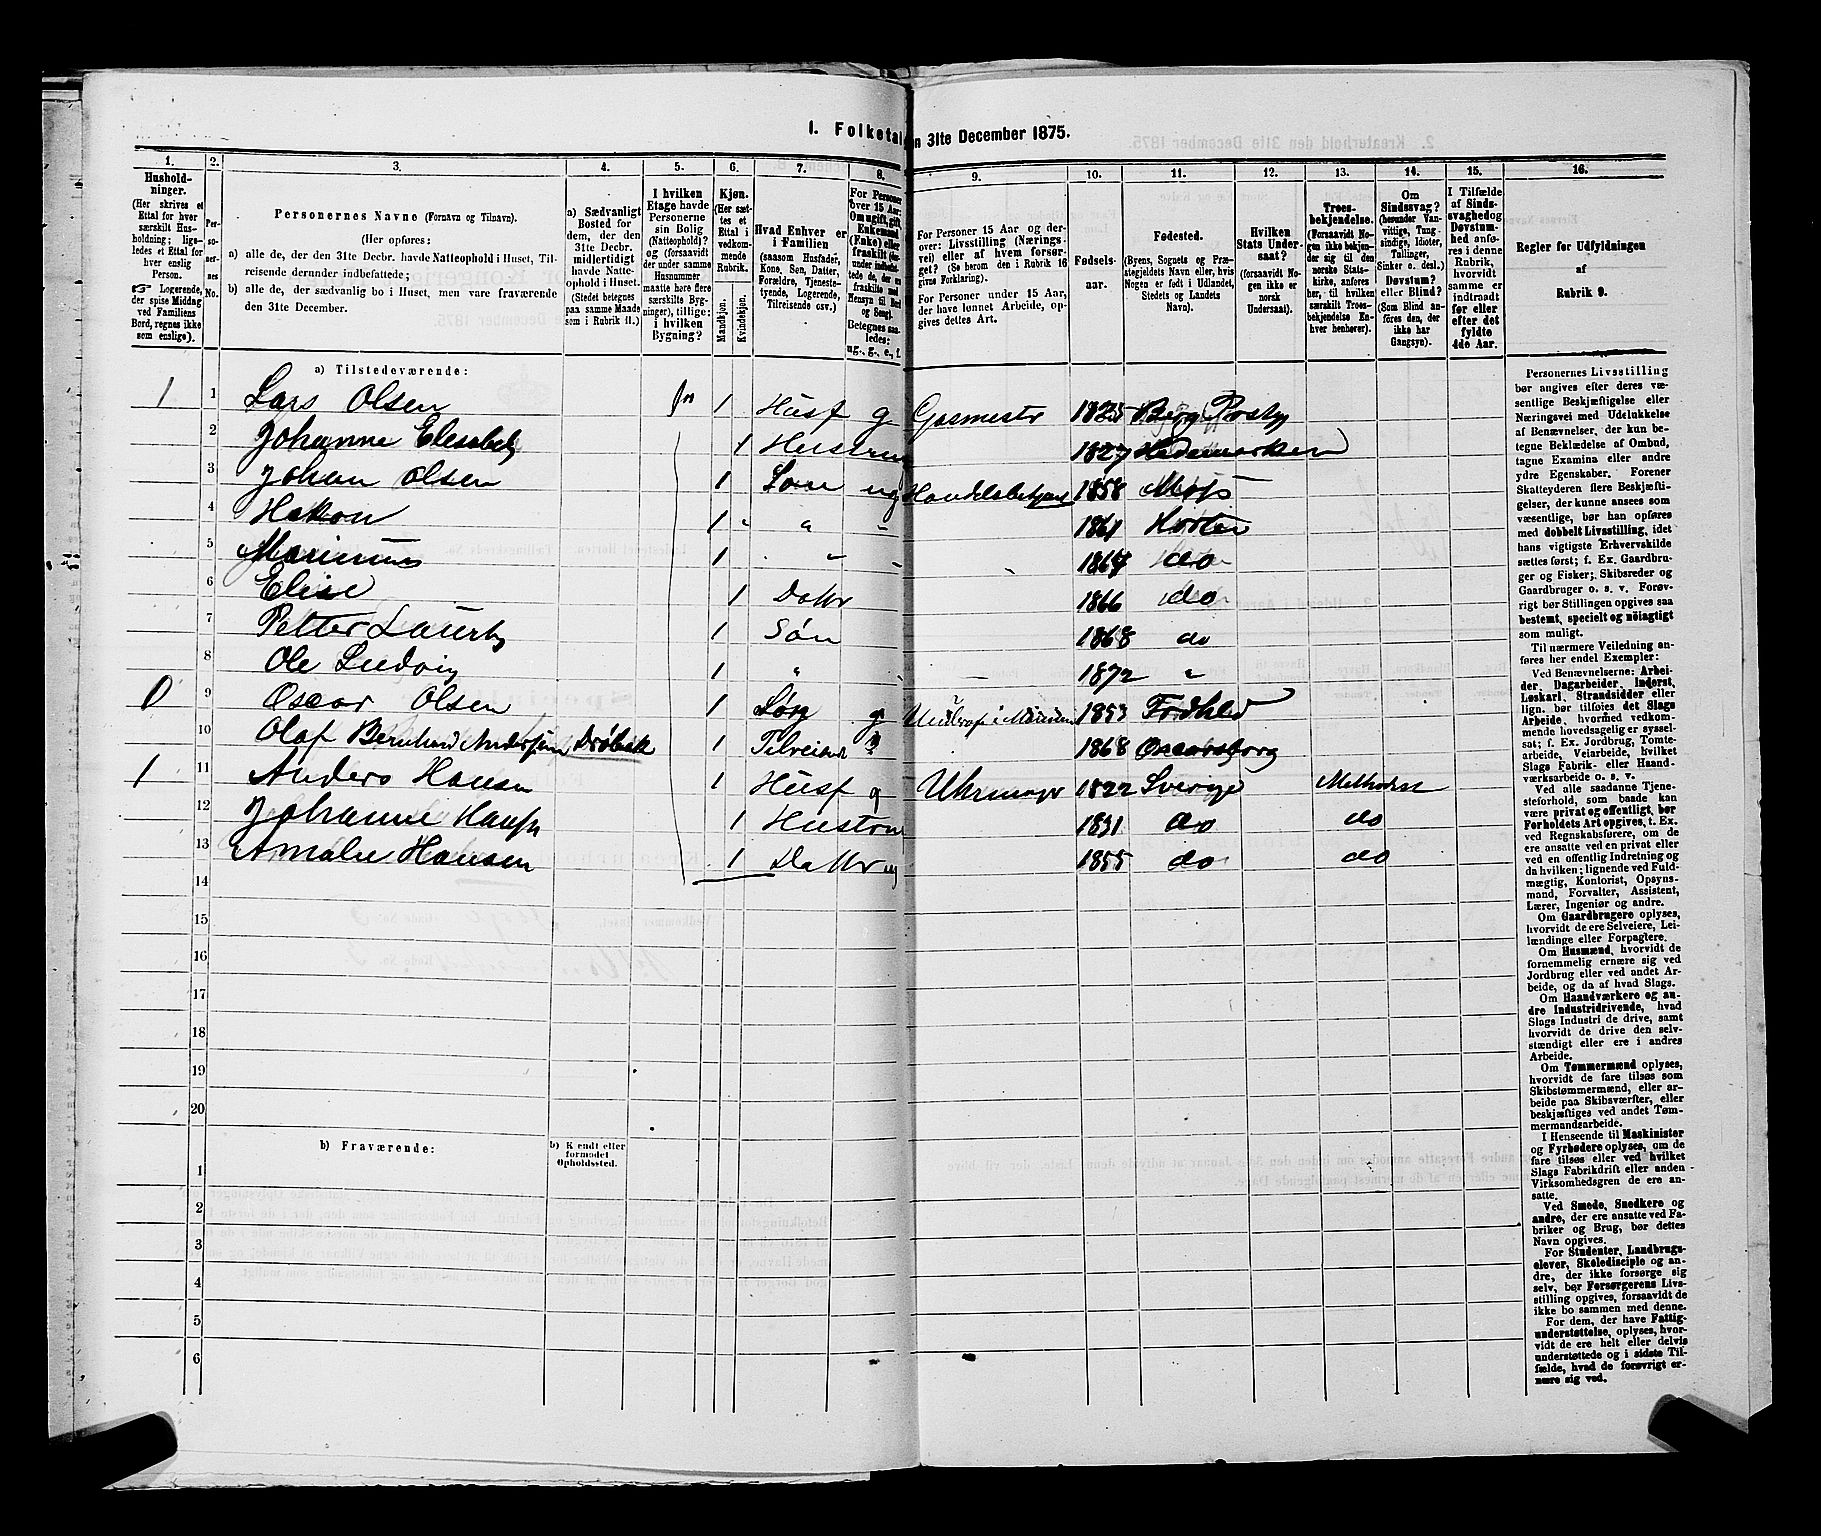 1. Folketal
n 31te December 1875.
1.
2.
3.
4.
5.
6.
7.
8.
9.
10.
11.
12.
13.
14.
15.
16.
Hushold-
ninger.
(Her skrives et
Ettal for hver
særskilt Hus-
holdning; lige-
ledes et Ettal for
hver enslig
Person.
☞ Logerende,
der spise Middag
ved Familiens
Bord, regnes ikke
som enslige).
Per-
so-
ner-
nes
No.
Personernes Navne (Fornavn og Tilnavn).
(Her opføres:
a) alle de, der den 31te Decbr. havde Natteophold i Huset, Til-
reisende derunder indbefattede;
b) alle de, der sædvanlig bo i Huset, men vare fraværende
den 31te December.
a) Sædvanligt
Bosted for
dem, der den
31te Decbr.
midlertidigt
havde Natte-
ophold i Huset.
(Stedet betegnes
paa samme Maade
som i Rubrik 11.)
I hvilken
Etage havde
Personerne
sin Bolig
(Natteophold)?
og (forsaavidt
der under samme
Husnummer
maatte høre flere
særskilte Byg-
ninger), tillige:
i hvilken
Bygning?
Kjøn.
(Her sæt-
tes et
Ettal i
vedkom-
mende
Rubrik.
Mandkjøn.
Kvindekjøn.
Hvad Enhver er
i Familien
(saasom Husfader,
Kone, Søn, Datter,
Forældre, Tjeneste-
tyende, Logerende,
Tilreisende osv.)
For Personer
over 15 Aar:
Om ugift, gift,
Enkemand
(Enke) eller
fraskilt
Betegnes saa-
ledes:
ug., g., e., f.
For Personer 15 Aar og der-
over: Livsstilling (Nærings-
vei) eller af hvem forsør-
get? (Se herom den i Rubrik 16
givne Forklaring).
For Personer under 15 Aar,
der have lønnet Arbeide, op-
gives dettes Art.
Fødsels-
aar.
Fødested.
(Byens, Sognets og Præ-
stegjeldets Navn eller, hvis
Nogen er født i Udlandet,
Stedets og Landets
Navn).
Hvilken
Stats Under-
saat?
(forsaavidt No-
gen ikke er
norsk
Undersaat).
Troes-
bekjendelse.
(Forsaavidt No-
gen ikke bekjen-
der sig til den
norske Stats-
kirke, anføres
her, til hvilken
særskilt Troes-
bekjendelse En-
hver henhører).
Om
Sindssvag?
(herunder Van-
vittige, Tung-
sindige, Idioter,
Tullinger,
Sinker o. desl.)
Døvstum?
eller Blind?
(Som Blind an-
føres den, der
ikke har
Gangsyn).
I Tilfælde
af Sinds-
svaghed og
Døvstum-
hed anfø-
res i denne
Rubrik,
hvorvidt
samme er
indtraadt
før eller
efter det
fyldte
4de Aar.
Regler for Udfyldningen
af
Rubrik 9.
a) Tilstedeværende:
1 1 Lars Olsen 1 Husf g Gasmestr 1825
2 Johanne 1 Hustru 1827 Hedemarken
3 Johan Olsen 1 Søn ug Handelsbetjent 1858 Moss
4 Hakon 1 " " 1861 Horten
5 Marinius 1 " 1864 do
6 Elise 1 Dattr 1866 do
7 Petter 1 Søn 1868 do
8 Ole Ludvig 1 " 1872 "
0 9 Oscar Olsen 1 1853
10 Olaf Bernhard Andersen Drøbak 1 1868 Oscarsborg
1 11 Anders Hansen 1 Husf g Uhrmagr 1822 Sverige Methodist
12 Johanne 1 Hustru 1831 do do
13 Amalie Hansen 1 Dattr ug 1855 do do
14
15
16
17
18
19
20
b) Fraværende:
b) Kjendt eller
formodet
Opholdssted.
1
2
3
4
5
6
Personernes Livsstilling
bør angives efter deres væ-
sentlige Beskjæftigelse eller
Næringsvei med Udelukkelse
af Benævnelser, der kun be-
tegne Beklædelse af Ombud,
tagne Examina eller andre
ydre Egenskaber. Forener
Skatteyderen flere Beskjæfti-
gelser, der kunne ansees som
væsentlige, bør han opføres
med dobbelt Livsstilling, idet
hans vigtigste Erhvervskilde
sættes først; f. Ex. Gaardbru-
ger og Fisker; Skibsreder og
Gaardbruger o. s. v. Forøv-
rigt bør Stillingen opgives saa
bestemt, specielt og nøiagtigt
som muligt.
Til nærmere Veiledning an-
føres her endel Exempler:
Ved Benævnelserne: Arbei-
der, Dagarbeider, Inderst,
Løskarl, Strandsidder eller
lign. bør tilføies det Slags
Arbeide, hvormed vedkom-
mende hovedsagelig er syssel-
sat; f. Ex. Jordbrug, Tomte-
arbeide, Veiarbeide, hvilket
Slags Fabrik- eller Haand-
værksarbeide o. s. v.
Ved alle saadanne Tjene-
steforhold, som baade kan
være privat og offentligt, bør
Forholdets Art opgives, t. Ex.
ved Regnskabsførere, om de
ere ansatte ved en privat eller
ved en offentlig Indretning og
da hvilken; lignende ved Fuld-
mægtig, Kontorist, Opsyns-
mand, Forvalter, Assistent,
Lærer, Ingeniør og andre.
Om Gaardbrugere oplyses,
hvorvidt de ere Selveiere, Lei-
lændinge eller Forpagtere.
Om Husmænd, hvorvidt de
fornemmelig ernære sig ved
Jordbrug eller ved andet Ar-
beide, og da af hvad Slags.
Om Haandværkere og an-
dre Industridrivende, hvad
Slags Industri de drive, samt
hvorvidt de drive den selv-
stændigt eller ere i andres
Arbeide.
Om Tømmermænd oplyses,
hvorvidt de fare tilsøs som
Skibstømmermænd, eller ar-
beide paa Skibsværfter, eller
beskjæftiges ved andet Tøm-
mermandsarbeide.
I Henseende til Maskinister
og Fyrbødere oplyses, om de
fare tilsøs eller ved hvilket
Slags Fabrikdrift eller anden
Virksomhedsgren de ere an-
satte.
Ved Smede, Snedkere og
andre, der ere ansatte ved Fa-
briker og Brug, bør dettes
Navn opgives.
For Studenter, Landbrugs-
elever, Skoledisciple og an-
dre, der ikke forsørge sig
selv, bør Forsørgerens Livs-
stilling opgives, forsaavidt de
ikke bo sammen med denne.
For dem, der have Fattig-
understøttelse, oplyses, hvor-
vidt de ere helt eller delvis
understøttede og i sidste Til-
fælde, hvad de forøvrigt er-
nære sig ved.